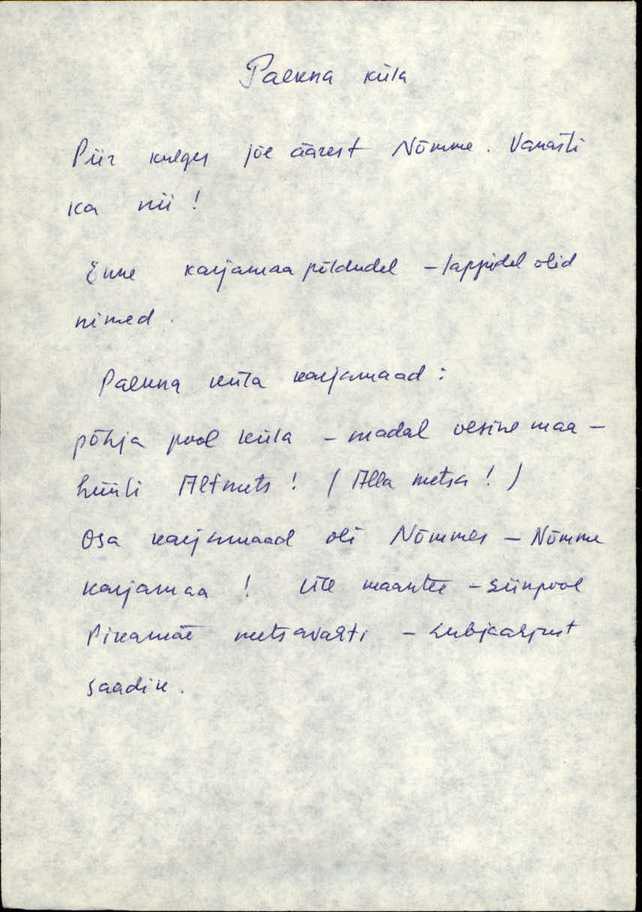 Paekna küla
Piir kulges jõe äärest Nõmme. Vanasti
ka nii!
Enne karjamaa põldudel - lappidel olid
nimed.
Paekna küla karjamaad:
põhja pool küla - madal vesine maa -
hüüti Altmets! (Alla metsa!)
Osa karjamaad oli Nõmmes - Nõmme
karjamaa! Üle maantee - siinpool
Pikamäe metsavahti - Lubjaahjust
saadik.